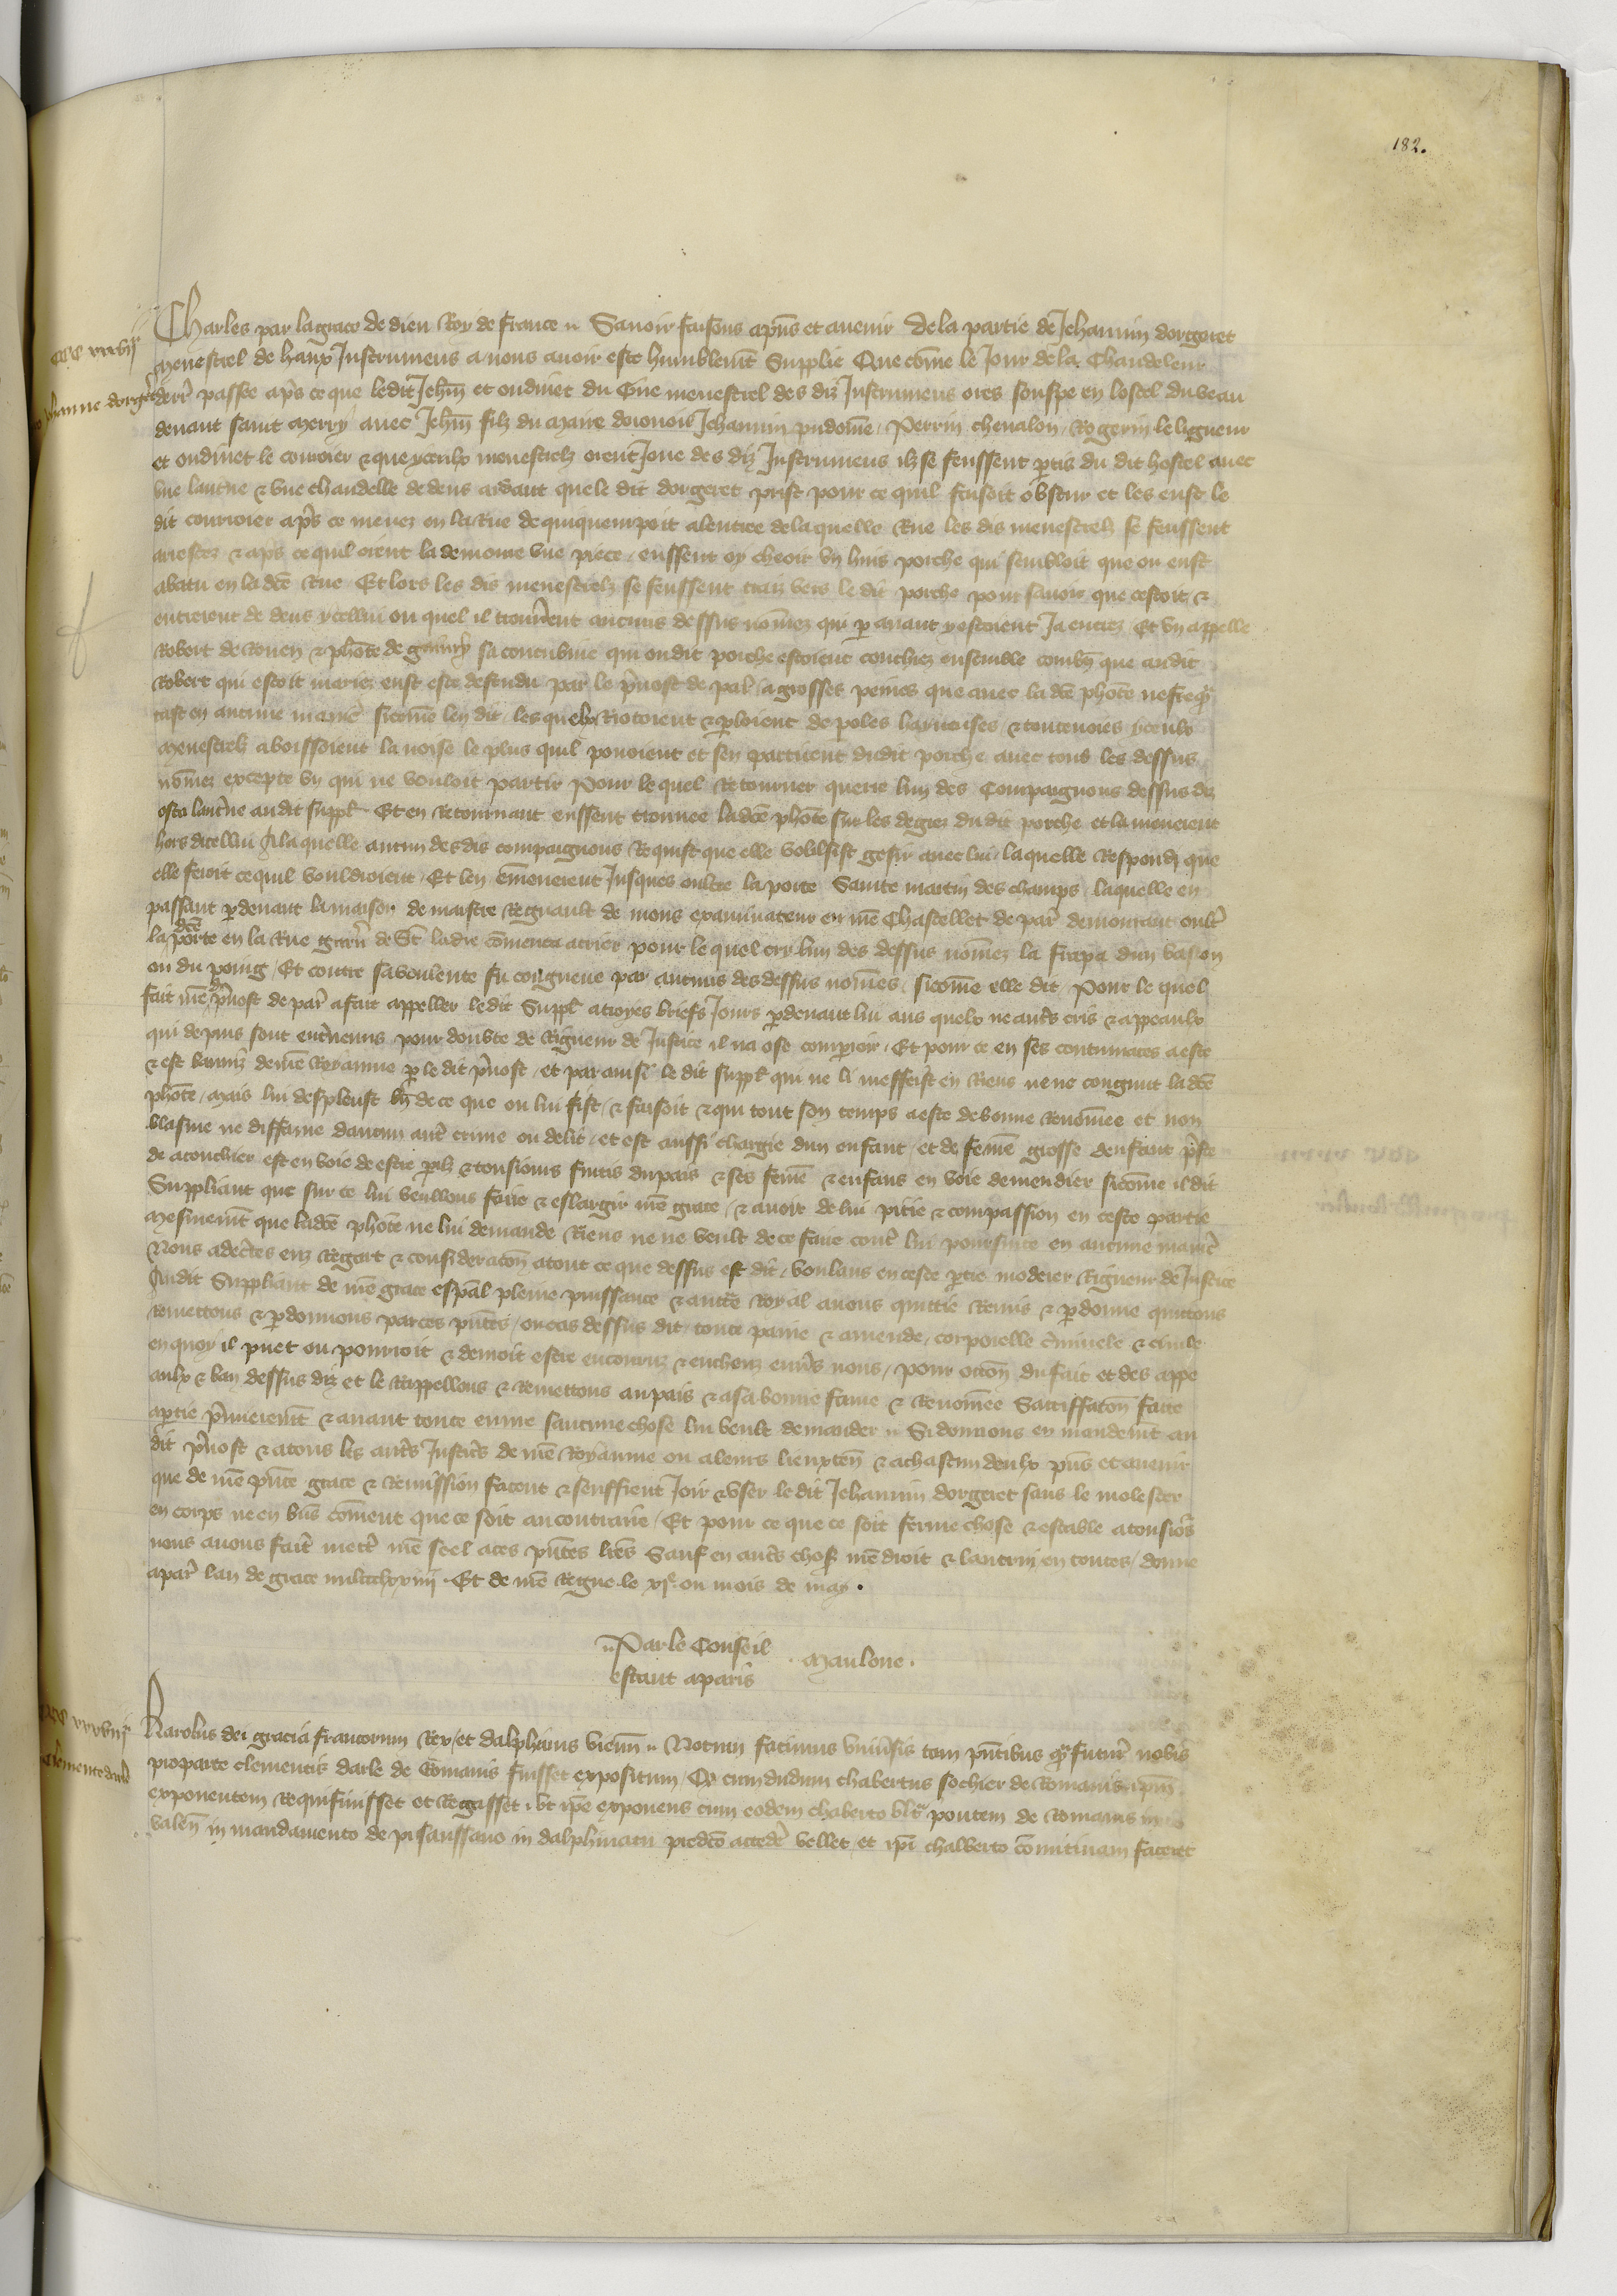 182.
Charles par la grace de dieu Roy de france Savoir faisons a pñs et avenir De la partie de Jehannin dorgeret
menestrel de haux Instrumens a nous avoir este humblemt Supplie Que cōme le Jour de la Chandeleur
derr̄ passee apr̄s ce que ledit Jehñ et oudinet du Gue menestrel des diz Instrumens ores souspe en lostel du veau
devant saint merry avec Jehñ filz du maire Jehannin pudōme Perrin chevalon Rogerin le ligneur
et oudinet le couroier & que yceulx menestrelz oient Joue des diz Instrumens ilz se feussent ptis du dit hostel avec
une lant̄ne & une chandelle dedens ardant que le dit dorgeret prist pour ce quil faisoit obscur et les eust le
dit couroier apr̄s ce menez en la Rue de quiquenpoit a lentree de laquelle Rue les dis menestrelz se feussent
arrestez & apr̄s ce quil oient la demoure une piece eussent oy cheoir un huis porche qui sembloit que on eust
abatu en la dc̄e Rue Et lors les dis menestrelz se feussent traiz vers le dit porche pour savoir que cestoit &
entrerent de dens ycellui ou quel il trouverent aucuns dessus nōmez qui p avant y estoient Ja entrez Et un appelle
Robert de Rouen & phōte de sa concubine qui ou dit porche estoient couchiez ensemble combñ que au dit
Robert qui estoit mariez eust este defendu par le p̄vost de par̄ a grosses peines que avec la dc̄e phōte
en aucune manr̄e sicōme len dit lesquelx Riotoient & ploient de poles hayneuses & yceulx
menestrelz aboissoient la noise le plus quil povoient et sen partirent dudit porche avec tous les dessus
nōmez excepte un qui ne vouloit partir Pour le quel Retourner querir lun des Compaignons dessus diz
osta lant̄ne audit suppl̄ Et en Retournant eussent trouvee ladc̄e phōte sur les degrez dudit porche et la menerent
hors dicellui A laquelle aucun des dis compaignons Requist que elle voulsist gesir avec lui laquelle Respondi que
elle feroit ce quil vouldroient Et len ēmenerent Jusques oultre la porte Saint martin des champs laquelle en
passant pdevant la maison de maistre Regnault de mons examinateur en nr̄e Chastellet de par̄ demourant oult̄
la dc̄e porte en la Rue de St ladre cōmenca a crier pour le quel cry lun des dessus nōmez la frapa dun baston
ou du poing Et contre sa voulente fu congneue par aucuns des dessus nōmes sicōme elle dit Pour le quel
fait nr̄e p̄vost de par̄ a fait appeller ledit Suppl̄ a troyes briefs Jours pdevant lui aus quelx ne aut̄s cris & appeaulx
qui depuis sont ensuivis pour doubte de Rigueur de Justice il na ose comparoir Et pour ce en ses contumaces a este
& est banniz de nr̄e Royaume p le dit p̄vost et par ainsi le dit suppl̄ qui ne li meffeist en Riens ne ne congnut ladc̄e
phōte mais lui despleust bñ de ce que on lui fist & faisoit & qui tout son temps a este de bonne Renōmee et non
blasme ne diffame daucun aut̄ crime ou delit et est aussi chargie dun enfant et de femē grosse denfant p̄ste
de acouchier est en voie de estre pilz & tousiours fuitis du pais & ses femē & enfans en voie de mendier sicōme il dit
Suppliant que sur ce lui veullons faire & eslargir nr̄e grace & avoir de lui pitie & compassion en ceste partie
mesmemt que ladc̄e phōte ne lui demande Riens ne ne veult de ce faire cont̄ lui poursuite en aucune manr̄
Nous adec̄tes euz Regart & consideracōn a tout ce que dessus est dit voulans en ceste ptie moderer Rigueur de Justice
Audit Suppliant de nr̄e grace esp̄al pleine puissance & aucto̅te Royal avons quittie Remis & pdonne quittons
Remettons & pdonnons par ces pñtes ou cas dessus dit toute paine & amende corporelle c̄minele & civile
en quoy il puet ou pourroit & devroit estre encouruz & encheuz env̄s nous pour occōn du fait et des appe
aulx & ban dessus diz et le Rappellons & Remettons au pais & a sa bonne fame & Renōmee Satiffacōn faite
a ptie p̄mieremt & avant toute euvre saucune chose lui veult demander Si donnons en mandemt au
dit p̄vost & a tous les aut̄s Justic̄s de nr̄e Royaume ou a leurs lieuxten̄ & a chascun deulx pñs et avenir
que de nr̄e pñte grace & Remission facent & seuffrent Joir & user le dit Jehannin dorgeret sans le molester
en corps ne en bñs cōment que ce soit au contraire Et pour ce que ce soit ferme chose & estable a tousiors
nous avons fait mett̄ nr̄e seel a ces pñtes lr̄es Sauf en aut̄s choses nr̄e droit & lautrui en toutes donne
a par̄ lan de grace mil ccc lxxiiii Et de nr̄e Regne le xie ou mois de may.
Par le Conseil
estant a paris
Maulone.
Karolus dei gracia francorum Rex et dalphinus vienn̄ Notum facimus univ̄sis tam pñtibus q̄ futur̄ nobis
pro parte clementis darle de Romanis fuisset expositum Q cum dudum chabertus sochier de Romanis ipm̄
exponentem Requisivisset et Rogasset ut ipe exponens cum eodem chaberto ultr̄ pontem de Romanis in
valen̄ in mandamento de pisansano in dalphinatu predc̄o acceder̄ vellet et ipi chalberto cōmitivam faceret